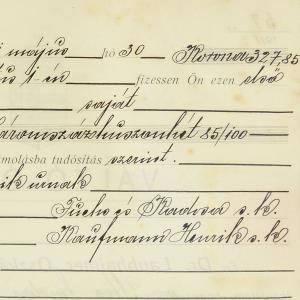 i május hó 30 Korona 327,85
us 1-én fizessen Ön ezen első
saját
áromszázhuszonhét 85/100
ámolásba tudósítás szerint.
ik urnak
Fuchs és Kadosa s. k.
Kaufmann Henrik s. k.